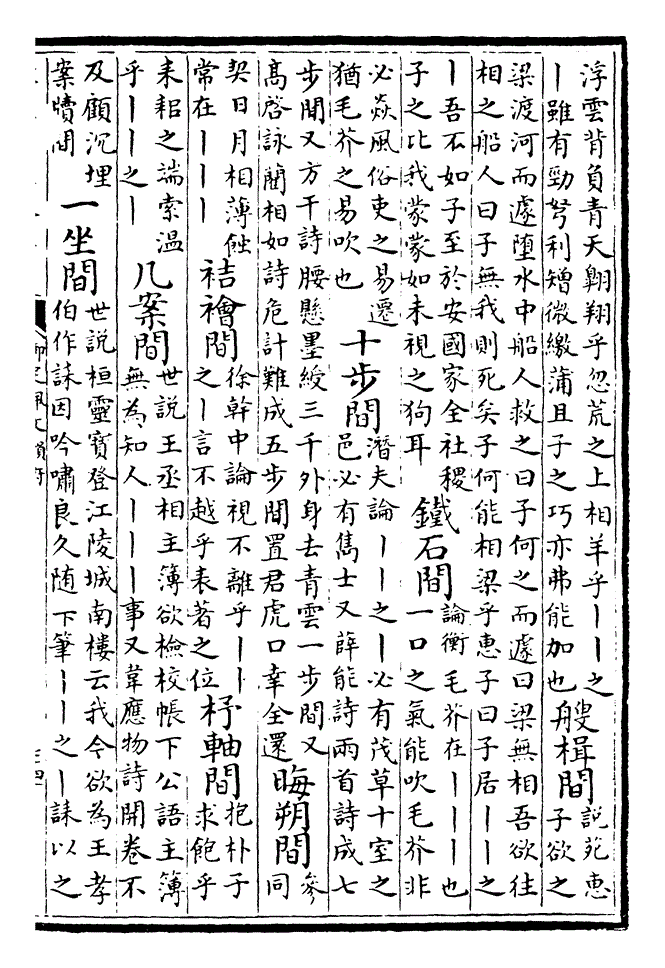 浮雲背負青天翺翔乎忽荒之上相羊乎丨丨之
丨雖有勁弩利矰微繳蒲且子之巧亦弗能加也
艘楫間
說苑惠
子欲之
梁渡河而遽墮水中船人救之曰子何之而遽曰梁無相吾欲往
相之船人曰子無我則死矣子何能相梁乎惠子曰子居丨丨之
丨吾不如子至於安國家全社稷
子之比我蒙蒙如未視之狗耳
鐵石間
論衡毛芥在丨丨丨也
一口之氣能吹毛芥非
必焱風俗吏之易遷
猶毛芥之易吹也
十步間
潛夫論丨丨之丨必有茂草十室之
邑必有雋士又薛能詩兩首詩成七
步間又方干詩腰懸墨綬三千外身去青雲一步間又
高啓詠藺相如詩危計難成五步間置君虎口幸全還
晦朔間
參
同
契日月相薄蝕
常在丨丨丨
袺襘間
徐幹中論視不離乎丨丨
之丨言不越乎表著之位
杼軸間
抱朴子
求飽乎
耒耜之端索温
乎丨丨之丨
几案間
世說王丞相主簿欲檢校帳下公語主簿
無為知人丨丨丨事又韋應物詩開卷不
及顧沉埋
案牘間
一坐間
世說桓靈寶登江陵城南樓云我今欲為王孝
伯作誄因吟嘯良久随下筆丨丨之丨誄以之